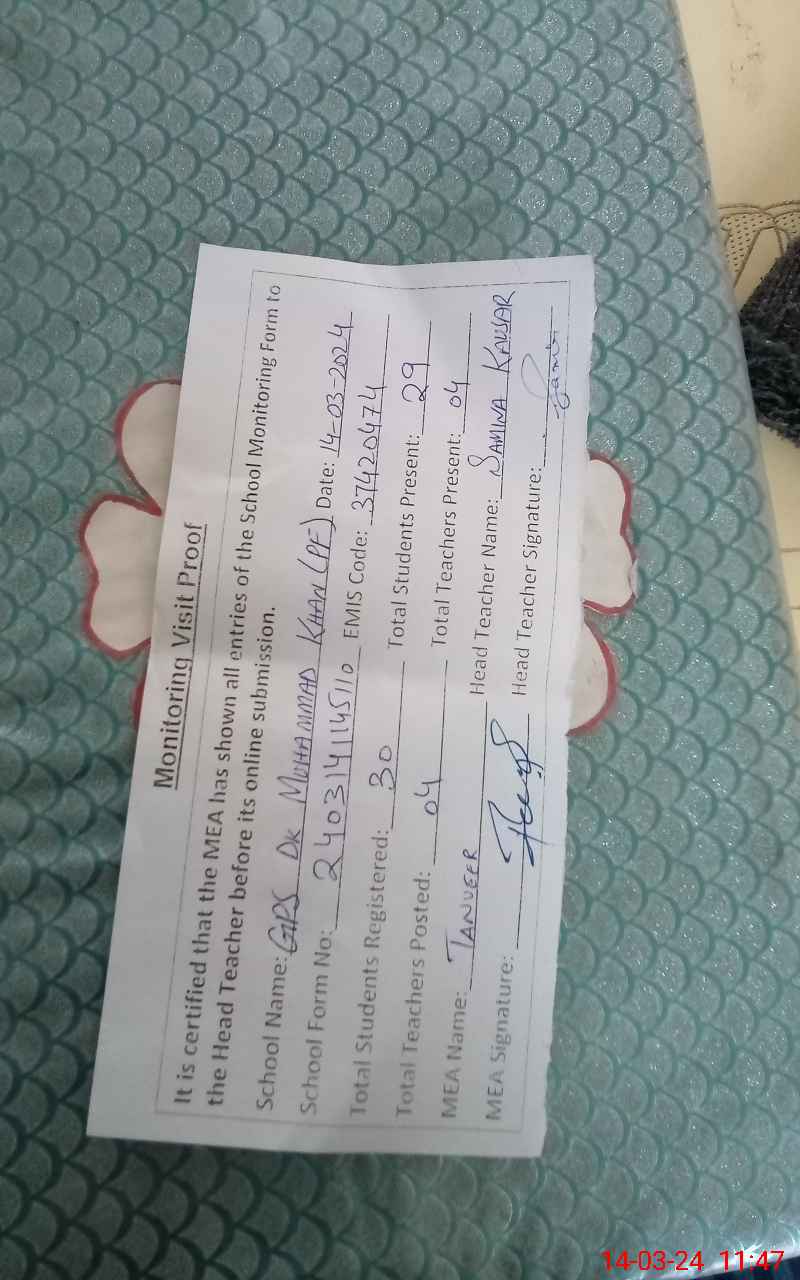 Monitoring Visit Proof
It is certified that the MEA has shown all entries of the School Monitoring Form to
the Head Teacher before its online submission.
School Name: GPS DK MUHAMMAD KHAN (PF) Date: 14-03-2024
School Form No: 2403141145110 EMIS Code: 37420474
Total Students Registered: 30 Total Students Present: 29
Total Teachers Posted: 04 Total Teachers Present: 04
MEA Name: TANVEER Head Teacher Name: SAMINA KAUSAR
MEA Signature: Head Teacher Signature:
14-03-24 11:47